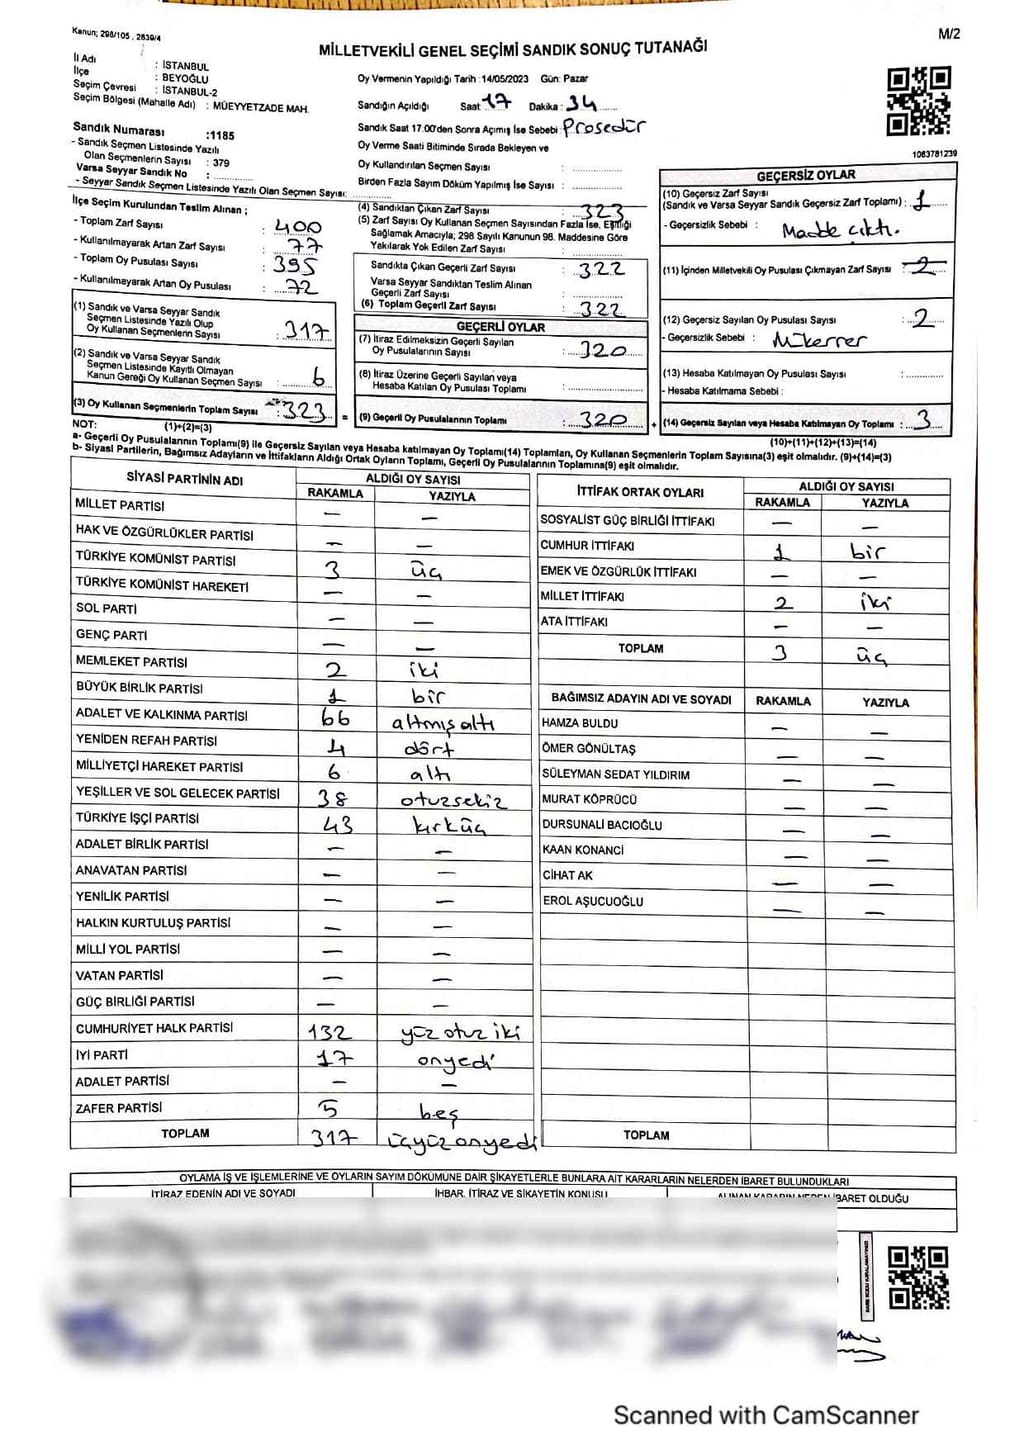 Kanun; 298/105 , 2839/4
M/2
MİLLETVEKİLİ GENEL SEÇİMİ SANDIK SONUÇ TUTANAĞI
İl Adı : İSTANBUL
İlçe : BEYOĞLU
Seçim Çevresi : İSTANBUL-2
Seçim Bölgesi (Mahalle Adı) : MÜEYYETZADE MAH.
Oy Vermenin Yapıldığı Tarih :14/05/2023 Gün: Pazar
Sandığın Açıldığı Saat :17 Dakika :34
Sandık Saat 17.00'den Sonra Açımış İse Sebebi : Prosedür
Oy Verme Saati Bitiminde Sırada Bekleyen ve
Oy Kullandırılan Seçmen Sayısı :
Birden Fazla Sayım Döküm Yapılmış İse Sayısı :
Sandık Numarası :1185
- Sandık Seçmen Listesinde Yazılı
Olan Seçmenlerin Sayısı : 379
Varsa Seyyar Sandık No :
- Seyyar Sandık Seçmen Listesinde Yazılı Olan Seçmen Sayısı:
1063781239
İlçe Seçim Kurulundan Teslim Alınan ;
- Toplam Zarf Sayısı : 400
- Kullanılmayarak Artan Zarf Sayısı : 77
- Toplam Oy Pusulası Sayısı : 395
- Kullanılmayarak Artan Oy Pusulası : 72
(1) Sandık ve Varsa Seyyar Sandık
Seçmen Listesinde Yazılı Olup
Oy Kullanan Seçmenlerin Sayısı : 317
(2) Sandık ve Varsa Seyyar Sandık
Seçmen Listesinde Kayıtlı Olmayan
Kanun Gereği Oy Kullanan Seçmen Sayısı : 6
(3) Oy Kullanan Seçmenlerin Toplam Sayısı : 323 =
(1)+(2)=(3)
(4) Sandıktan Çıkan Zarf Sayısı : 323
(5) Zarf Sayısı Oy Kullanan Seçmen Sayısından Fazla İse, Eşitliği
Sağlamak Amacıyla, 298 Sayılı Kanunun 98. Maddesine Göre
Yakılarak Yok Edilen Zarf Sayısı :
Sandıkta Çıkan Geçerli Zarf Sayısı : 322
Varsa Seyyar Sandıktan Teslim Alınan
Geçerli Zarf Sayısı :
(6) Toplam Geçerli Zarf Sayısı : 322
GEÇERLİ OYLAR
(7) İtiraz Edilmeksizin Geçerli Sayılan
Oy Pusulalarının Sayısı : 320
(8) İtiraz Üzerine Geçerli Sayılan veya
Hesaba Katılan Oy Pusulası Toplamı :
(9) Geçerli Oy Pusulalarının Toplamı : 320 +
GEÇERSİZ OYLAR
(10) Geçersiz Zarf Sayısı
(Sandık ve Varsa Seyyar Sandık Geçersiz Zarf Toplamı) : 1
- Geçersizlik Sebebi : Madde çıktı.
(11) İçinden Milletvekili Oy Pusulası Çıkmayan Zarf Sayısı : 2
(12) Geçersiz Sayılan Oy Pusulası Sayısı : 2
- Geçersizlik Sebebi : Mükerrer
(13) Hesaba Katılmayan Oy Pusulası Sayısı :
- Hesaba Katılmama Sebebi :
(14) Geçersiz Sayılan veya Hesaba Katılmayan Oy Toplamı : 3
(10)+(11)+(12)+(13)=(14)
NOT:
a- Geçerli Oy Pusulalarının Toplamı(9) ile Geçersiz Sayılan veya Hesaba katılmayan Oy Toplamı(14) Toplamları, Oy Kullanan Seçmenlerin Toplam Sayısına(3) eşit olmalıdır. (9)+(14)=(3)
b- Siyasi Partilerin, Bağımsız Adayların ve İttifakların Aldığı Ortak Oyların Toplamı, Geçerli Oy Pusulalarının Toplamına(9) eşit olmalıdır.
SİYASİ PARTİNİN ADI ALDIĞI OY SAYISI
RAKAMLA YAZIYLA
MİLLET PARTİSİ — —
HAK VE ÖZGÜRLÜKLER PARTİSİ — —
TÜRKİYE KOMÜNİST PARTİSİ 3 üç
TÜRKİYE KOMÜNİST HAREKETİ — —
SOL PARTİ — —
GENÇ PARTİ — —
MEMLEKET PARTİSİ 2 iki
BÜYÜK BİRLİK PARTİSİ 1 bir
ADALET VE KALKINMA PARTİSİ 66 altmışaltı
YENİDEN REFAH PARTİSİ 4 dört
MİLLİYETÇİ HAREKET PARTİSİ 6 altı
YEŞİLLER VE SOL GELECEK PARTİSİ 38 otuzsekiz
TÜRKİYE İŞÇİ PARTİSİ 43 kırküç
ADALET BİRLİK PARTİSİ — —
ANAVATAN PARTİSİ — —
YENİLİK PARTİSİ — —
HALKIN KURTULUŞ PARTİSİ — —
MİLLİ YOL PARTİSİ — —
VATAN PARTİSİ — —
GÜÇ BİRLİĞİ PARTİSİ — —
CUMHURİYET HALK PARTİSİ 132 yüz otuz iki
İYİ PARTİ 17 onyedi
ADALET PARTİSİ — —
ZAFER PARTİSİ 5 beş
TOPLAM 317 üçyüzonyedi
İTTİFAK ORTAK OYLARI ALDIĞI OY SAYISI
RAKAMLA YAZIYLA
SOSYALİST GÜÇ BİRLİĞİ İTTİFAKI — —
CUMHUR İTTİFAKI 1 bir
EMEK VE ÖZGÜRLÜK İTTİFAKI — —
MİLLET İTTİFAKI 2 iki
ATA İTTİFAKI — —
TOPLAM 3 üç
BAĞIMSIZ ADAYIN ADI VE SOYADI RAKAMLA YAZIYLA
HAMZA BULDU — —
ÖMER GÖNÜLTAŞ — —
SÜLEYMAN SEDAT YILDIRIM — —
MURAT KÖPRÜCÜ — —
DURSUNALİ BACIOĞLU — —
KAAN KONANCİ — —
CİHAT AK — —
EROL AŞUCUOĞLU — —
TOPLAM
OYLAMA İŞ VE İŞLEMLERİNE VE OYLARIN SAYIM DÖKÜMÜNE DAİR ŞİKAYETLERLE BUNLARA AİT KARARLARIN NELERDEN İBARET BULUNDUKLARI
İTİRAZ EDENİN ADI VE SOYADI İHBAR, İTİRAZ VE ŞİKAYETİN KONUSU ALINAN KARARIN NEDEN İBARET OLDUĞU
Scanned with CamScanner